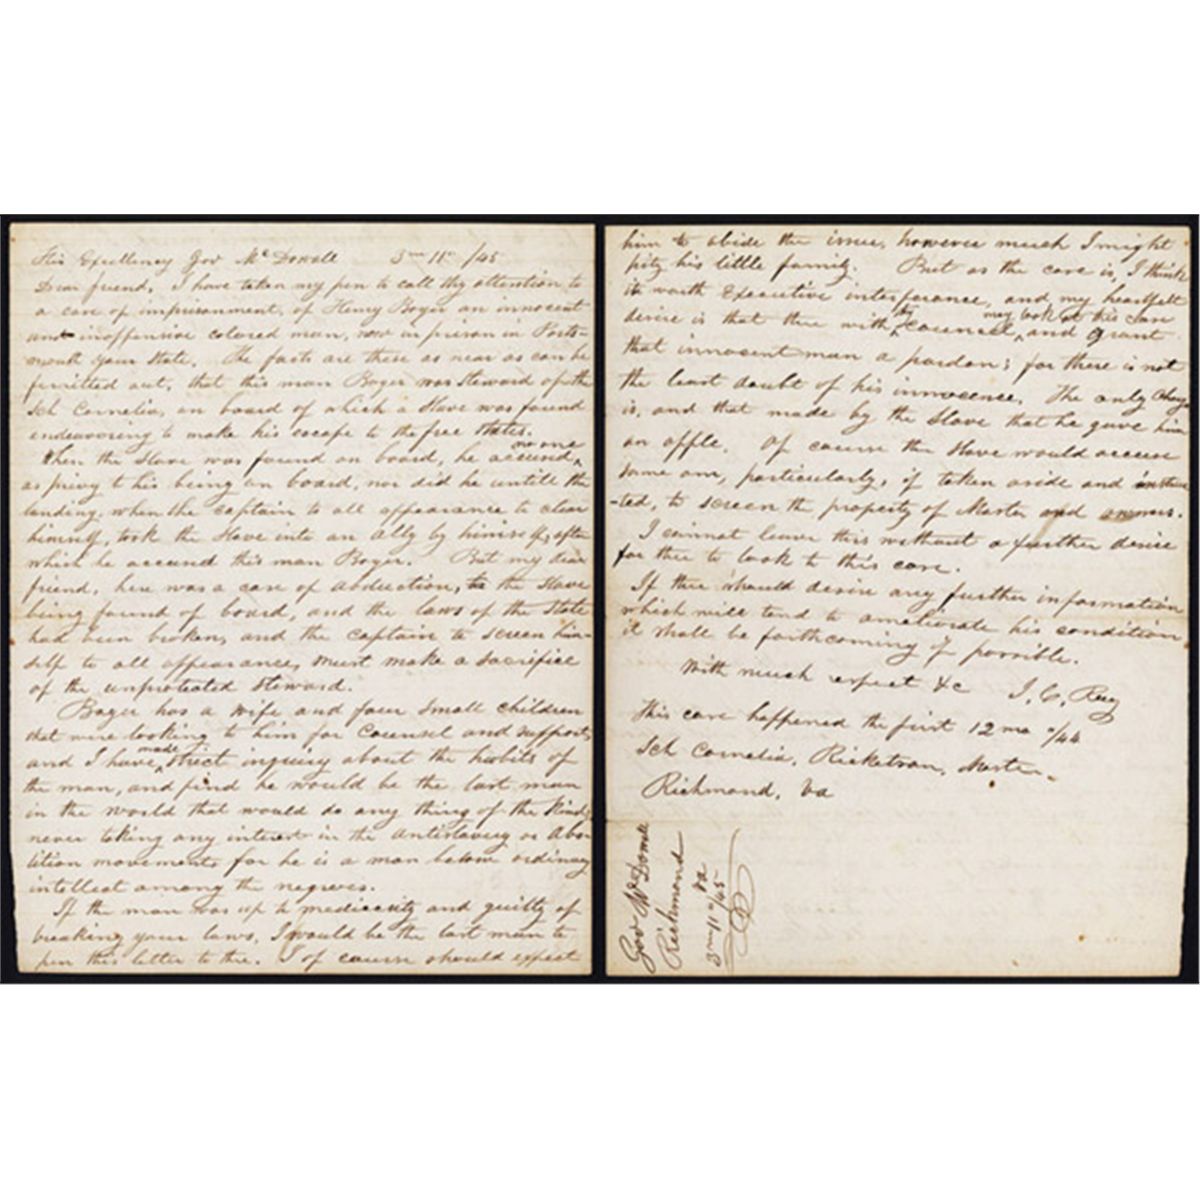 His Excellency Gov McDowell 3mo 11th /45
Dear friend, I have taken my pen to call thy attention to
a case of imprisonment, of Henry Boyer an innocent
and inoffensive colored man, now in prison in Ports-
mouth your State. The facts are these as near as can be
ferritted out, that this man Boyer was Steward of the
Sch Cornelia, on board of which a Slave was found
endeavoring to make his escape to the free states.
When the Slave was found on board, he accused no one
as privy to his being on board, nor did he untill the
landing, when the captain to all appearance to clear
himself, took the Slave into an Ally by himself, after
which he accused this man Boyer. But my dear
friend, here was a case of abduction, the Slave
being found of board, and the laws of the State
had been broken, and the captain to screen him-
self to all appearance, must make a sacrifice
of the unprotected Steward.
Boyer has a wife and four small children
that were looking to him for Counsel and support,
and I have made strict inquiry about the habits of
the man, and find he would be the last man
in the world that would do any thing of the kind,
never taking any interest in the Antislavery or Abo-
lition movements, for he is a man below ordinary
intellect among the negroes.
If the man was up to mediocrity and guilty of
breaking your laws, I would be the last man to
pen this letter to thee. I of course should expect
him to abide the issue, however much I might
pity his little family. But as the case is, I think
its worth Executive interferance, and my heartfelt
desire is that thee with thy Council, may look at his case and grant
that innocent man a pardon; for there is not
the least doubt of his innocence. The only charge
is, and that made by the Slave that he gave him
an apple. Of course the Slave would accuse
some one, particularly, if taken aside and instruc
-ted, to screen the property of Master and owners.
I cannot leave this without a further desire
for thee to look to this case.
If thee should desire any further information
which will tend to ameliorate his condition
it shall be forthcoming if possible.
With much respect &c J. C. Ray
This case happened the first 12 mo /44
Sch Cornelia, Ricketson, Master
Richmond, Va
Gov McDowell
Richmond
Va
3mo 11th /45